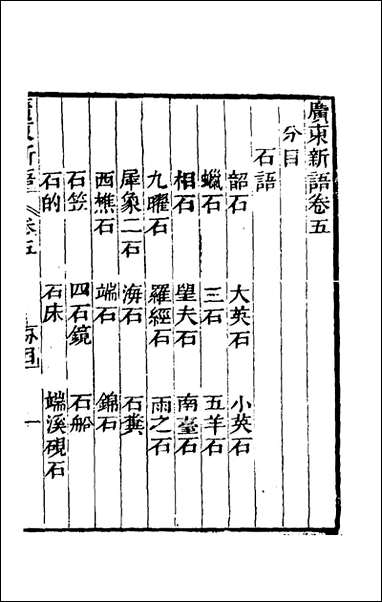 廣東新語卷五
分目
石語
韶石 大英石 小英石
蠟石 三石 五羊石
相石 望夫石 南臺石
九曜石 羅經石 雨之石
犀象二石 海石 石糞
西樵石 端石 錦石
石笠 四石鏡 石船
石的 石床 端溪硯石
廣東新語 卷五 一